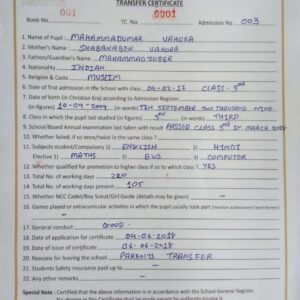 TRANSFER CERTIFICATE
Book No. 001 TC. No. 0001 Admission No. 003
1. Name of Pupil MAHAMMADUMAR VAHORA
2. Mother's Name SHABANABEN VAHORA
3. Father's/Guardian's Name MAHAMMADZUBER
4. Nationality INDIAN
5. Religion & Caste MUSLIM
6. Date of first admission in the School with class 04-02-17 CLASS-3rd
7. Date of birth (in Christian Era) according to Admission Register
(in figures) 10-09-2009 (in words) TEN SEPTEMBER TWO THOUSAND NINE
8. Class in which the pupil last studied (in figures) 3rd (in words) THIRD
9. School/Board Annual examination last taken with result PASSED CLASS 3rd IN MARCH
10. Whether failed, if so once/twice in the same class?
11. Subjects studied/Compulsory 1) ENGLISH 2) HINDI
Elective 1) MATHS 2) EVS 3) COMPUTER
12. Whether qualified for promotion to higher class if so to which class YES
13. Total No. of working days 220
14. Total No. of working days present 105
15. Whether NCC Cadet/Boy Scout/Girl Guide (details may be given) -
16. Games played or extracurricular activities in which the pupil usually took part (mention achievement level therein)
-
17. General conduct GOOD
18. Date of application for certificate 04-06-2018
19. Date of issue of certificate 06-06-2018
20. Reasons for leaving the school PARENTS TRANSFER
21. Students Safety insurance paid up to -
22. Any other remarks -
Special Note : Certified that the above information is in accordance with the School General Register